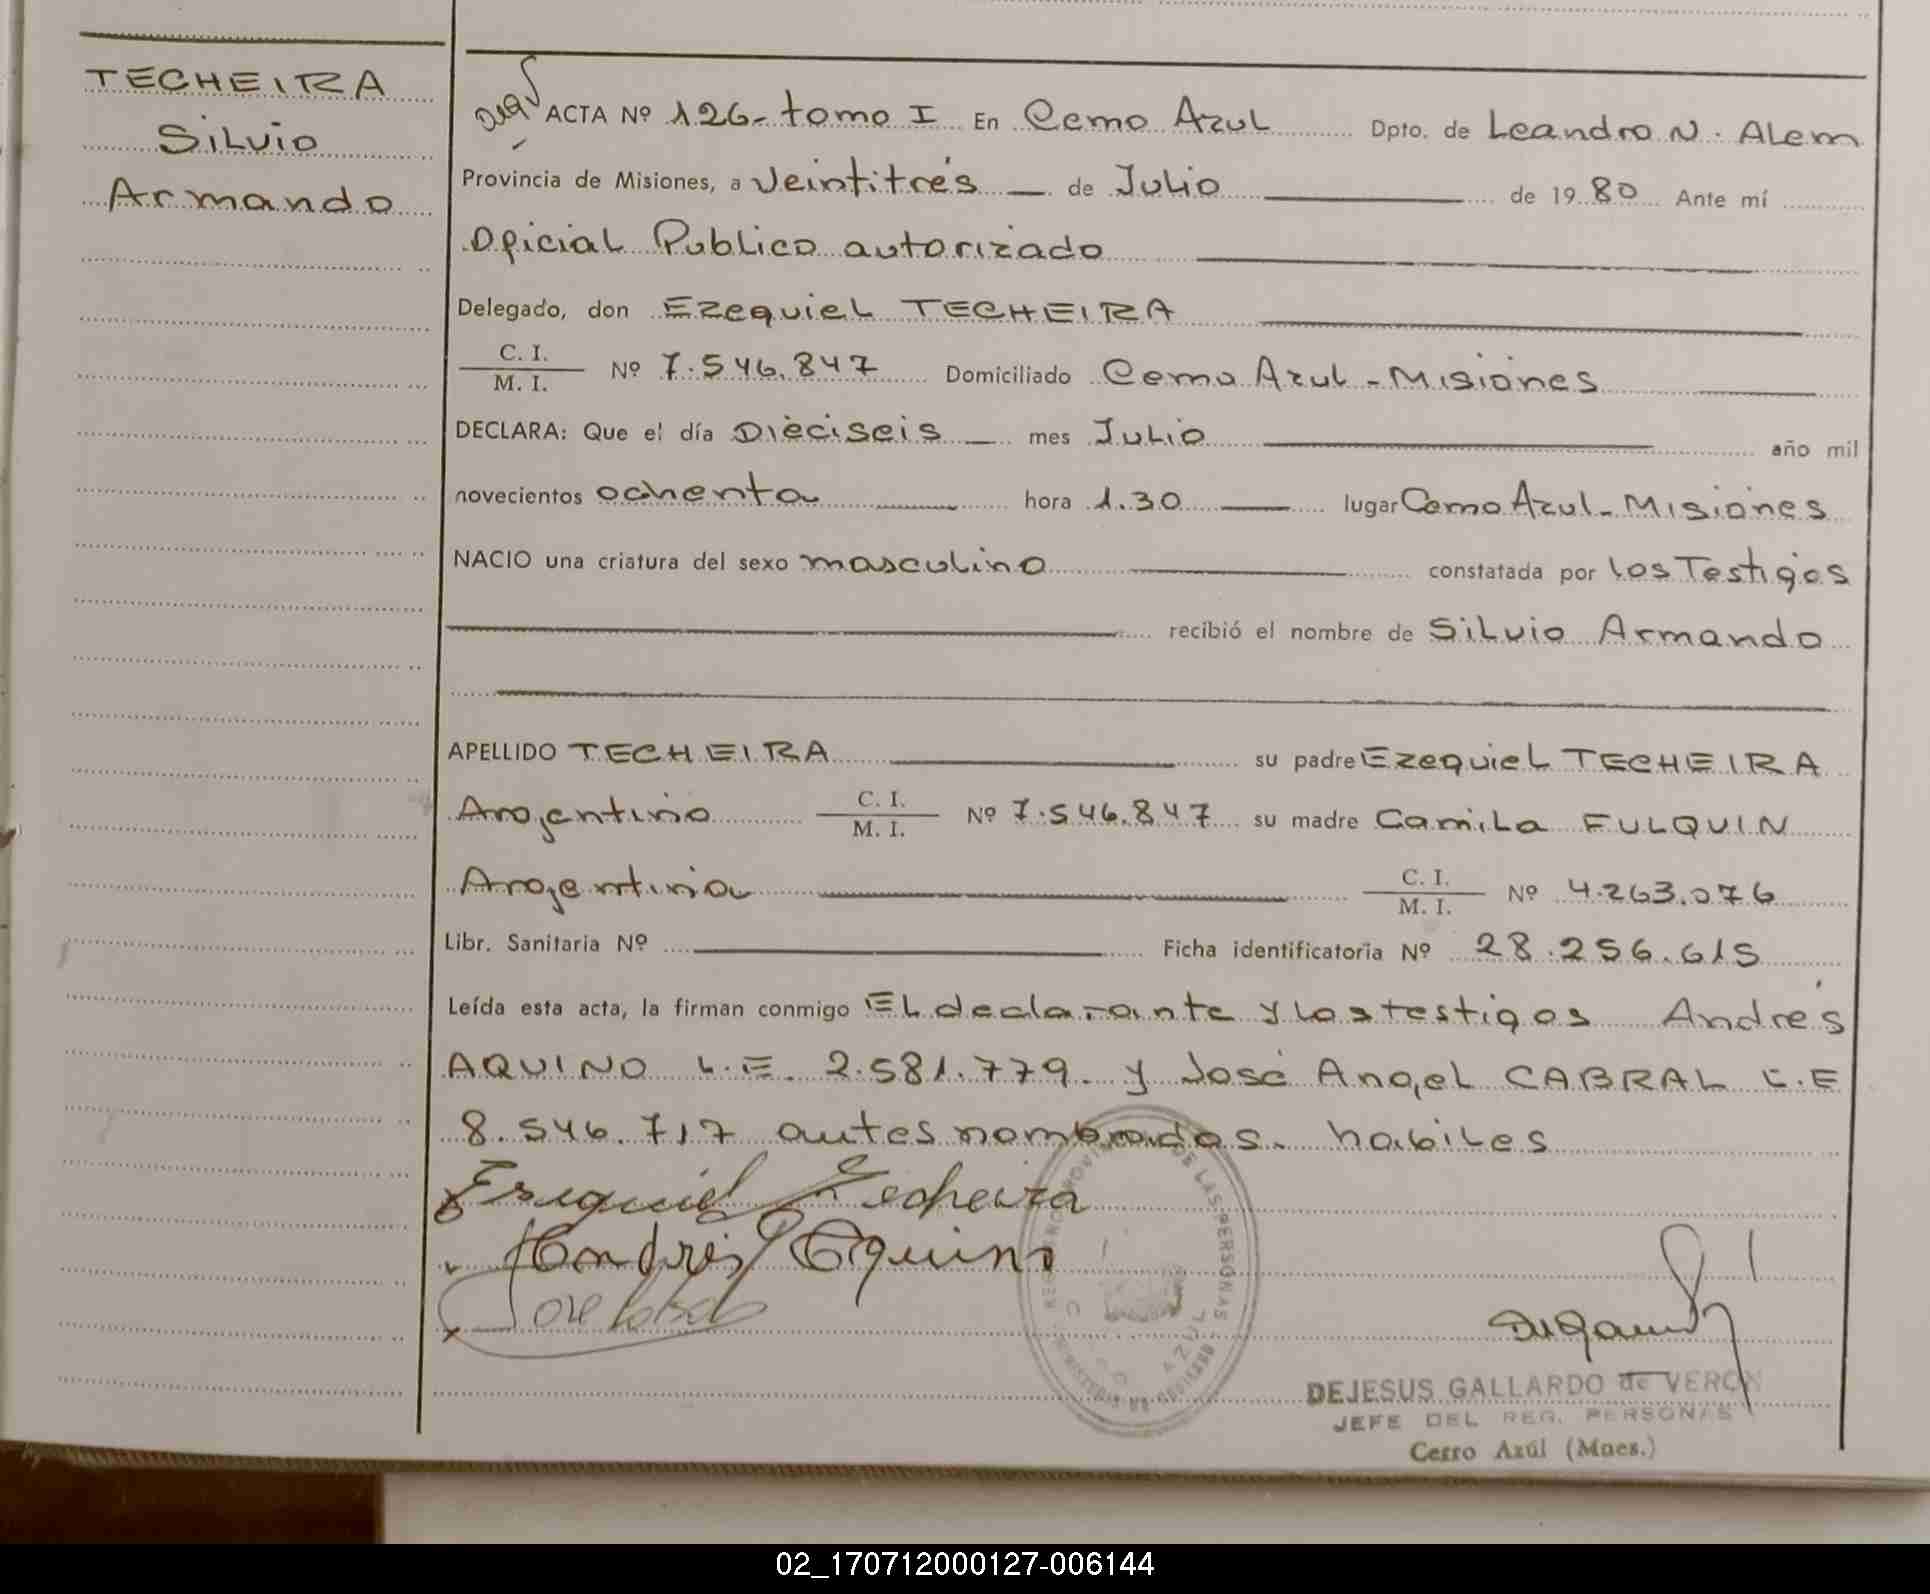 TECHEIRA
Silvio
Armando
ACTA Nº 126- tomo I En Cerro Azul Dpto. de Leandro N. Alem
Provincia de Misiones, a Veintitrés de Julio de 1980 Ante mí
Oficial Publico autorizado
Delegado, don Ezequiel TECHEIRA
C. I.
M. I. Nº 7.546.847 Domiciliado Cerro Azul - Misiones
DECLARA: Que el día Dieciseis mes Julio año mil
novecientos ochenta hora 1.30 lugar Cerro Azul - Misiones
NACIO una criatura del sexo masculino constatada por los Testigos
recibió el nombre de Silvio Armando
APELLIDO TECHEIRA su padre Ezequiel TECHEIRA
Argentino C. I. M. I. Nº 7.546.847 su madre Camila FULQUIN
Argentina C. I. M. I. Nº 4.263.076
Libr. Sanitaria Nº Ficha identificatoria Nº 28.256.615
Leída esta acta, la firman conmigo El declarante y los testigos Andrés
AQUINO L.E. 2.581.779. y José Angel CABRAL L.E
8.546.717 antes nombrados. habiles
Ezequiel Techeira
Andrés Aquino
DEJESUS GALLARDO de VERON
JEFE DEL REG. PERSONAS
Cerro Azúl (Mnes.)
02_170712000127-006144